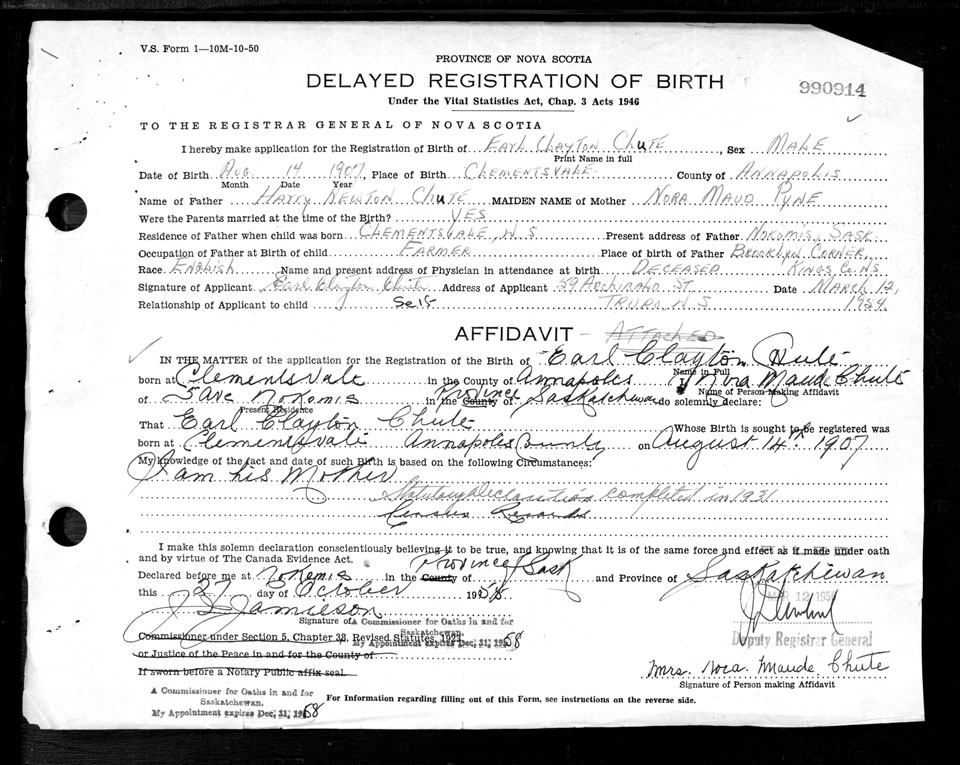 V.S. Form 1—10M-10-50
PROVINCE OF NOVA SCOTIA
DELAYED REGISTRATION OF BIRTH
990914
Under the Vital Statistics Act, Chap. 3 Acts 1946
TO THE REGISTRAR GENERAL OF NOVA SCOTIA
I hereby make application for the Registration of Birth of EARL CLAYTON CHUTE, Sex MALE
Print Name in full
Date of Birth AUG. 14 1907, Place of Birth CLEMENTSVALE County of ANNAPOLIS
Month Date Year
Name of Father HARRY NEWTON CHUTE MAIDEN NAME of Mother NORA MAUD PYNE
Were the Parents married at the time of the Birth? YES
Residence of Father when child was born CLEMENTSVALE, N.S Present address of Father NOKOMIS, SASK
Occupation of Father at Birth of child FARMER Place of birth of Father BROOKLYN CORNER
Race ENGLISH Name and present address of Physician in attendance at birth DECEASED KINGS, Co. N.S
Signature of Applicant Earl Clayton Chute Address of Applicant 39 ARCHIBALD ST Date MARCH 12,
Relationship of Applicant to child Self TRURO, N.S 1959.
AFFIDAVIT - ATTACHED
IN THE MATTER of the application for the Registration of Birth of Earl Clayton Chute
Name in Full
born at Clementsvale in the County of Annapolis I, Nora Maude Chute
Name of Person Making Affidavit
of Nokomis in the County Province of Saskatchewan do solemnly declare:
Present Residence
That Earl Clayton Chute Whose Birth is sought to be registered was
born at Clementsvale Annapolis County on August 14th 1907
My knowledge of the fact and date of such Birth is based on the following Circumstances:
I am his Mother
Statutory Declaration completed in 1931
Census Records
I make this solemn declaration conscientiously believing it to be true, and knowing that it is of the same force and effect as if made under oath
and by virtue of The Canada Evidence Act.
Declared before me at Nokomis in the County of Province Sask and Province of Saskatchewan
this 27 day of October 1958
J. S. Jamieson
Signature of A Commissioner for Oaths in and for
Saskatchewan.
Commissioner under Section 5, Chapter 38, Revised Statutes, 1923 My Appointment expires Dec. 31, 1958
or Justice of the Peace in and for the County of
Deputy Registrar General
If sworn before a Notary Public affix seal.
Mrs. Nora Maude Chute
Signature of Person making Affidavit
A Commissioner for Oaths in and for
Saskatchewan.
My Appointment expires Dec. 31, 1958
For Information regarding filling out of this Form, see instructions on the reverse side.